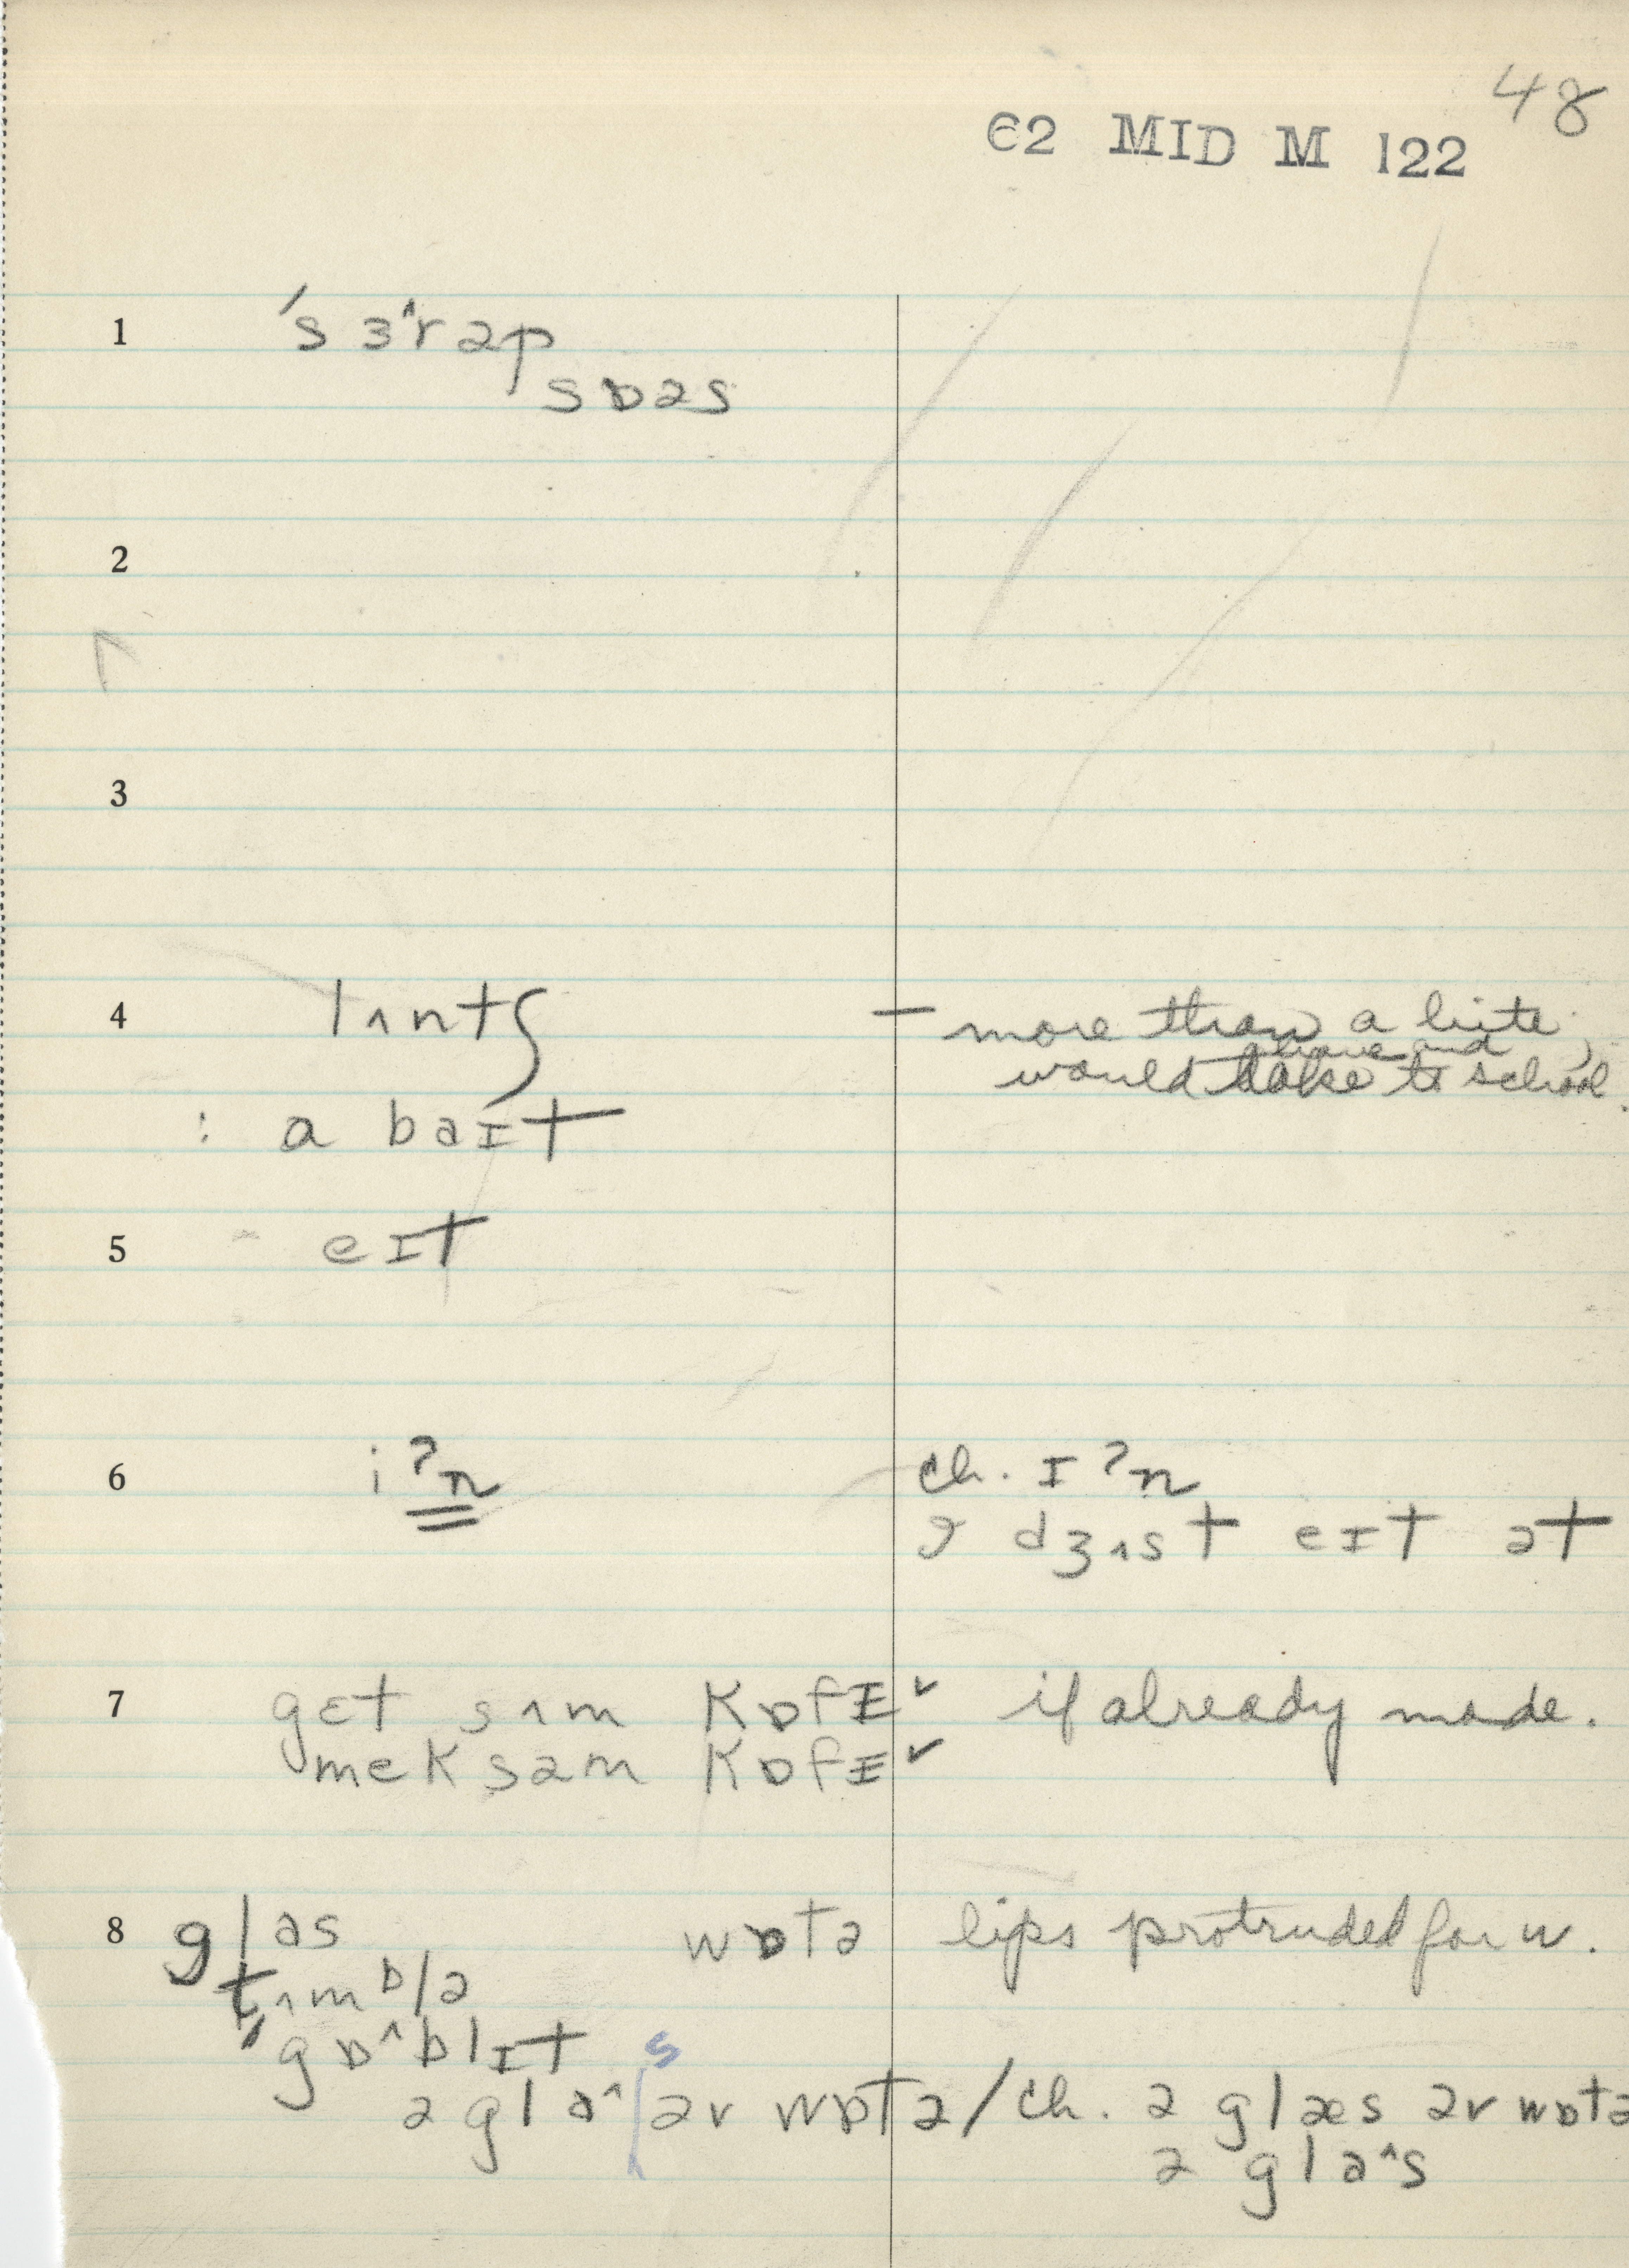 48
C2 MID M 122
1 ˈsɜ^rəp
sɒəs
2
3
4 lʌntʃ – more than a bite;
above and
would take to school.
: a baɪt
5 eɪt
6 iʔn ch. ɪʔn
dʒʌst eɪt ət
7 gɛt sʌm kɒfɪˇ if already made.
mek səm kɒfɪˇ
8 glas wɒtə lips protruded for w.
tʌmblə
gɒ^blɪt
ə gla^s əv wɒtə / ch. ə glæs əv wɒtə
ə gla^s